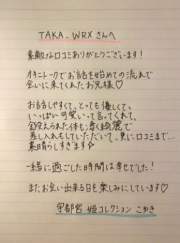 TAKA_WRXさんへ
素敵な口コミありがとうございます！
オキニトークでお話を始めての流れで
会いに来てくれたお兄様♡
お話しやすくて、とっても優しくて、
いっぱい可愛いって言ってくれて、
鍛えられた体も凄く綺麗で
差し入れもしていただいて、更に口コミまで…
素晴らしすぎます♡
一緒に過ごした時間は幸せでした！
またお会い出来る日を楽しみにしています♡
宇都宮 姫コレクション こゆき